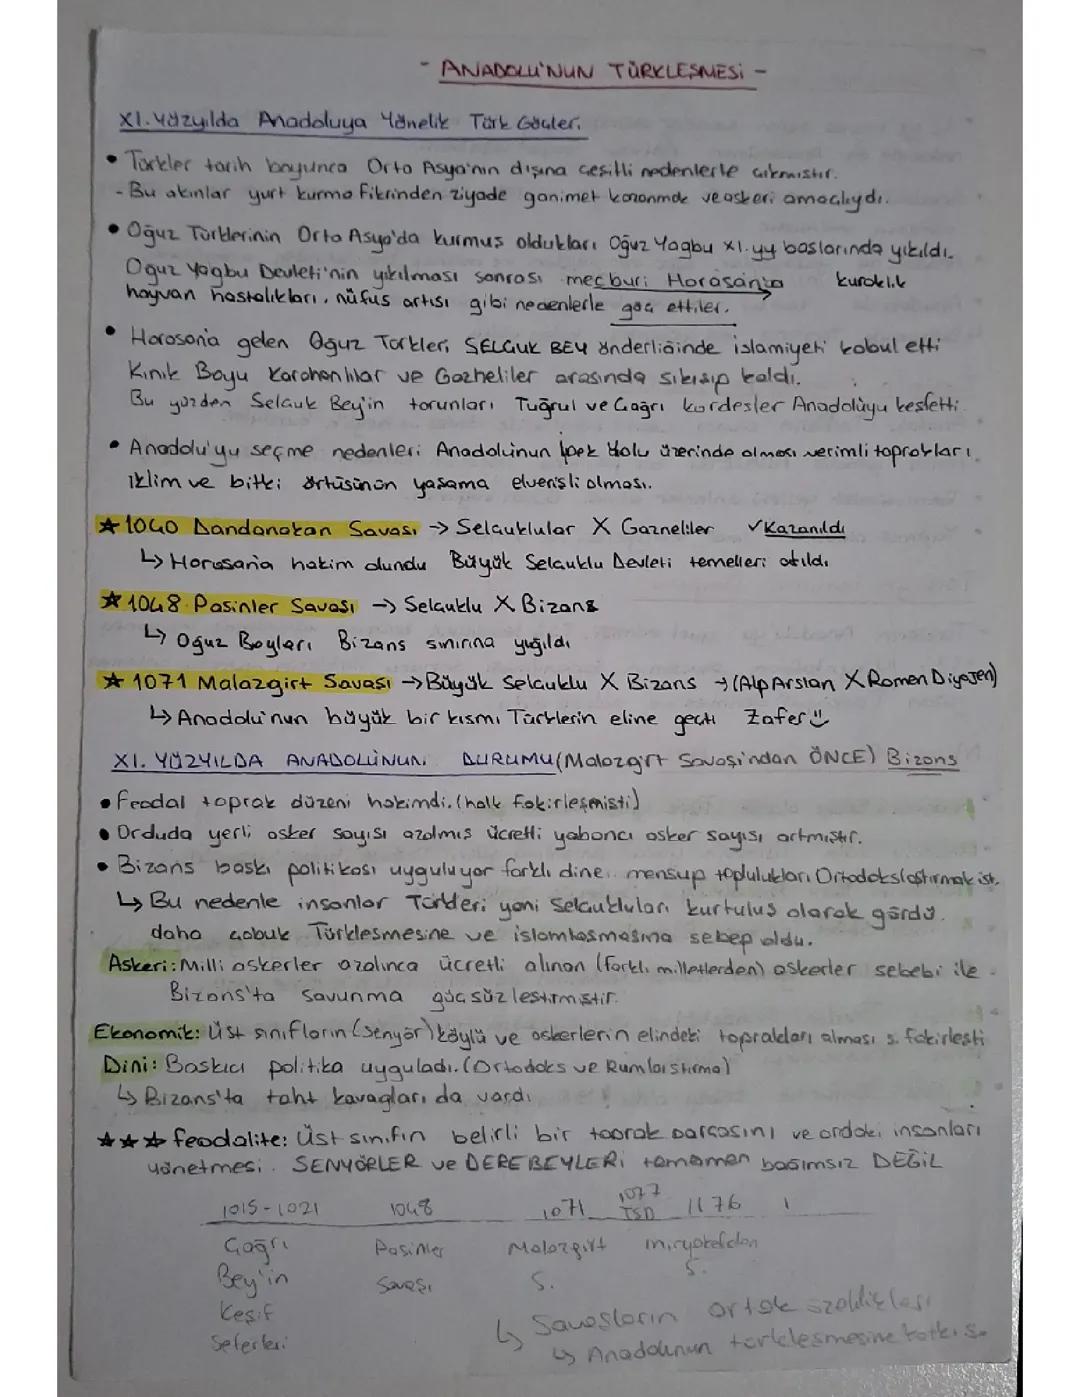 - ANADOLU'NUN TÜRKLEŞMESİ -
XI. Yüzyılda Anadoluya Yönelik Türk Göçler.
• Türkler tarih boyunca Orta Asya'nın dışına çeşitli nedenlerle çıkmıştır.
- Bu akınlar yurt kurma fikrinden ziyade ganimet kazanmak ve askeri amaçlıydı.
• Oğuz Türklerinin Orta Asya'da kurmuş oldukları Oğuz Yagbu XI.yy başlarında yıkıldı.
Oğuz Yagbu Devleti'nin yıkılması sonrası mecburi Horasan'a kuraklık
hayvan hastalıkları, nüfus artışı gibi nedenlerle göç ettiler.
• Horosan'a gelen Oğuz Türkleri SELÇUK BEY önderliğinde islamiyeti kabul etti
Kınık Boyu Karahanlılar ve Gazneliler arasında sıkışıp kaldı.
Bu yüzden Selçuk Bey'in torunları Tuğrul ve Çağrı kardeşler Anadolu'yu keşfetti.
• Anadolu'yu seçme nedenleri Anadolu'nun İpek Yolu üzerinde olması verimli toprakları
iklim ve bitki örtüsünün yaşama elverişli olması.
★ 1040 Dandanakan Savaşı → Selçuklular X Gazneliler ✓Kazanıldı
↳ Horasan'a hakim olundu Büyük Selçuklu Devleti temelleri atıldı
★ 1048 Pasinler Savaşı → Selçuklu X Bizans
↳ Oğuz Boyları Bizans sınırına yığıldı
★ 1071 Malazgirt Savaşı → Büyük Selçuklu X Bizans → (Alp Arslan X Romen Diyojen)
↳ Anadolu'nun büyük bir kısmı Türklerin eline geçti Zafer
XI. YÜZYILDA ANADOLUNUN DURUMU (Malazgirt Savaşı'ndan ÖNCE) Bizans
• Feodal toprak düzeni hakimdi. (halk fakirleşmişti)
• Orduda yerli asker sayısı azalmış ücretli yabancı asker sayısı artmıştır.
• Bizans baskı politikası uyguluyor farklı dine mensup toplulukları Ortodokslaştırmak ist.
↳ Bu nedenle insanlar Türkleri yani Selçukluları kurtuluş olarak gördü.
daha çabuk Türkleşmesine ve islamlaşmasına sebep oldu.
Askeri: Milli askerler azalınca ücretli alınan (farklı milletlerden) askerler sebebi ile
Bizans'ta savunma güçsüzleştirmiştir.
Ekonomik: Üst sınıfların (senyör) köylü ve askerlerin elindeki toprakları alması s. fakirleşti
Dini: Baskıcı politika uyguladı. (Ortodoks ve Rumlaştırma)
↳ Bizans'ta taht kavgaları da vardı
★★★ feodalite: Üst sınıfın belirli bir toprak parçasını ve ordaki insanları
yönetmesi. SENYÖRLER ve DEREBEYLERİ tamamen bağımsız DEĞİL
1015-1021 1048 1071 1077 TSD 1176
Çağrı Pasinler Malazgirt miryokefalon
Bey'in Savaşı S. S.
Keşif
Seferleri
↳ Savaşların ortak özellikleri
↳ Anadolunun türkleşmesine katkı s.